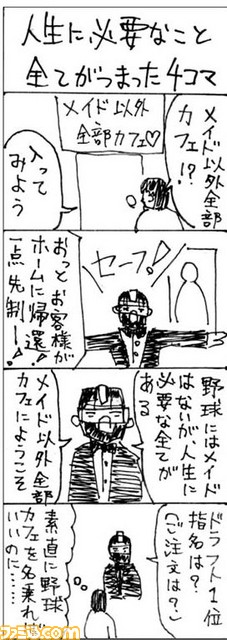 人生に必要なこと
全てがつまった4コマ
メイド以外
全部カフェ♡
メイド以外全部
カフェ!?
入って
みよう
セーフ!
おっとお客様が
ホームに帰還!
一点先制ー!
野球にはメイド
はないが人生に
必要な全てが
ある
メイド以外全部
カフェにようこそ
ドラフト1位
指名は?
(ご注文は?)
素直に野球
カフェを名乗れば
いいのに……
ファミ通.com